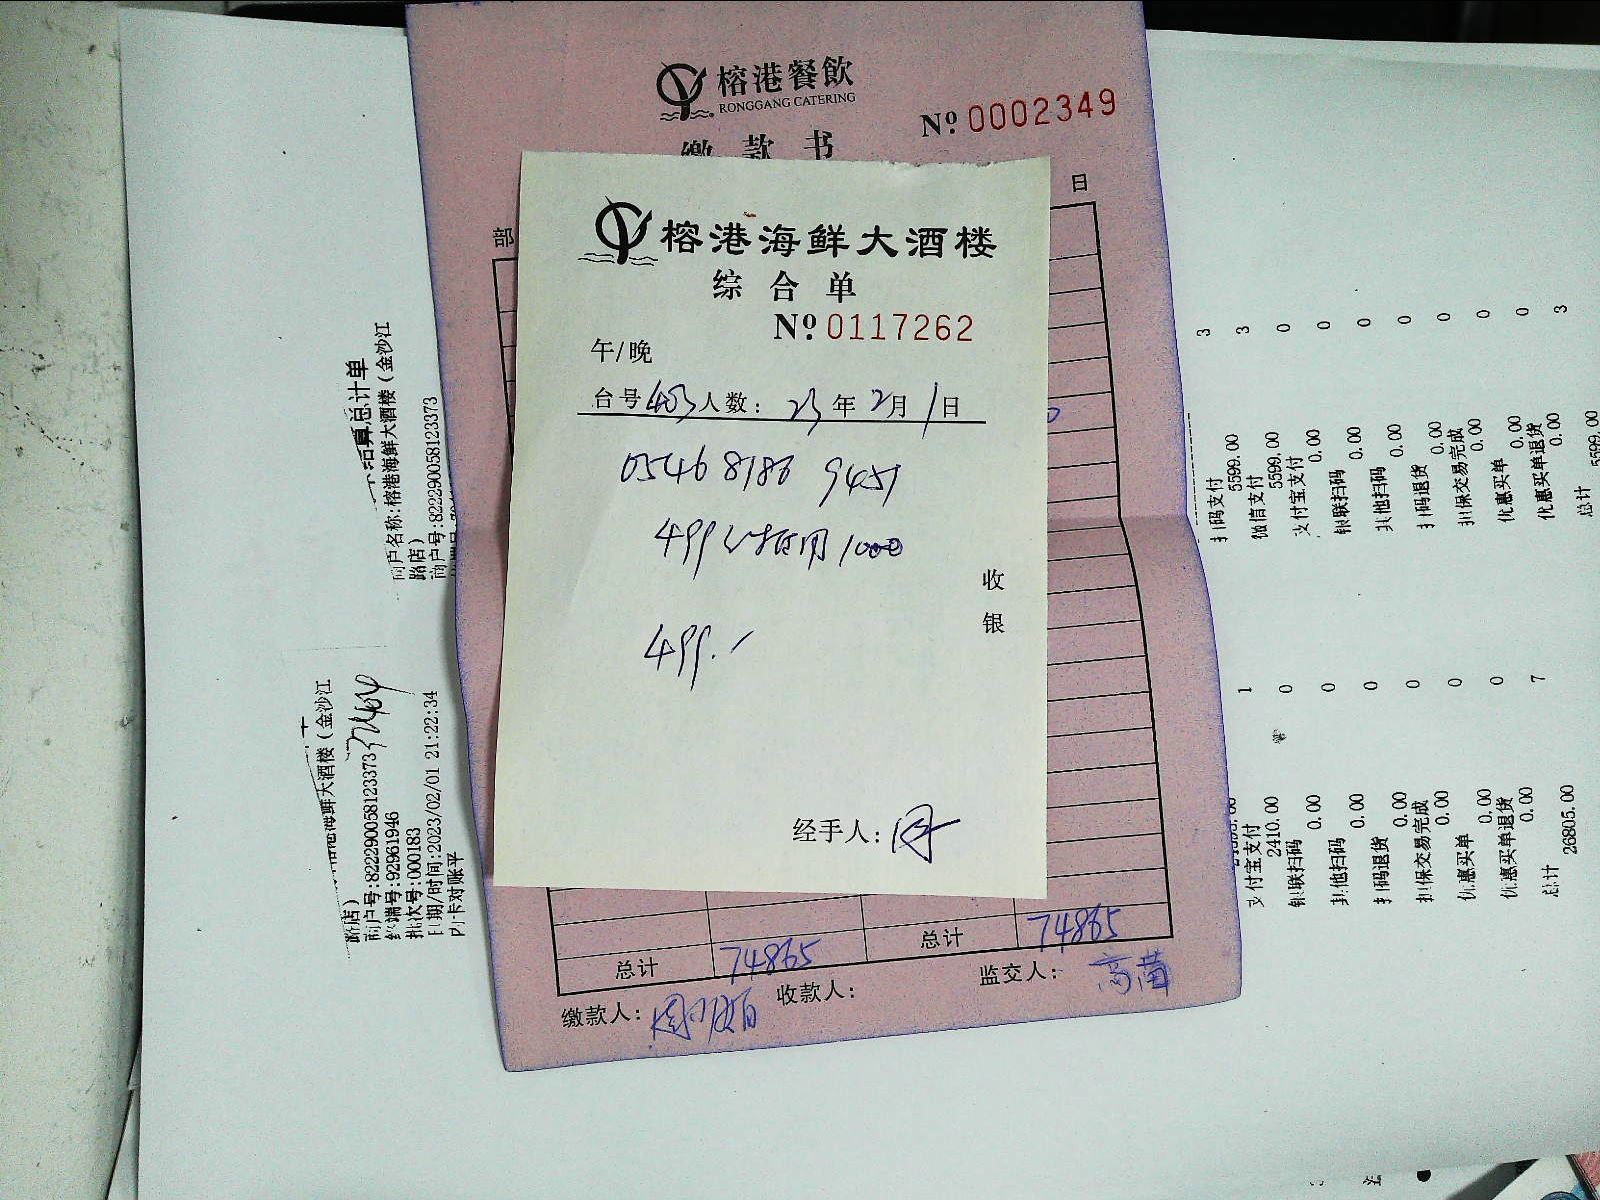 榕港餐飲
RONGGANG CATERING
缴款书
Nº 0002349
日
部
榕港海鲜大酒楼
综合单
Nº 0117262
午/晚
台号 403 人数: 23 年 2 月 1 日
0546 8186 9451
499 抵用 1000
499.
收
银
经手人:
总计 74865 总计 74865
缴款人: 收款人: 监交人:
总计单
商户名称:榕港海鲜大酒楼(金沙江
路店)
商户号:822290058123373
海鲜大酒楼(金沙江
路店)
商户号:822290058123373
终端号:92961946
批次号:000183
日期/时间:2023/02/01 21:22:34
内卡对账平
3
扫码支付 5599.00
微信支付 3 5599.00
支付宝支付 0 0.00
银联扫码 0 0.00
其他扫码 0 0.00
扫码退货 0 0.00
担保交易完成 0 0.00
优惠买单 0 0.00
优惠买单退货 0 0.00
总计 3 5599.00
支付宝支付 1 2410.00
银联扫码 0 0.00
其他扫码 0 0.00
扫码退货 0 0.00
担保交易完成 0 0.00
优惠买单 0 0.00
优惠买单退货 0 0.00
总计 7 26805.00